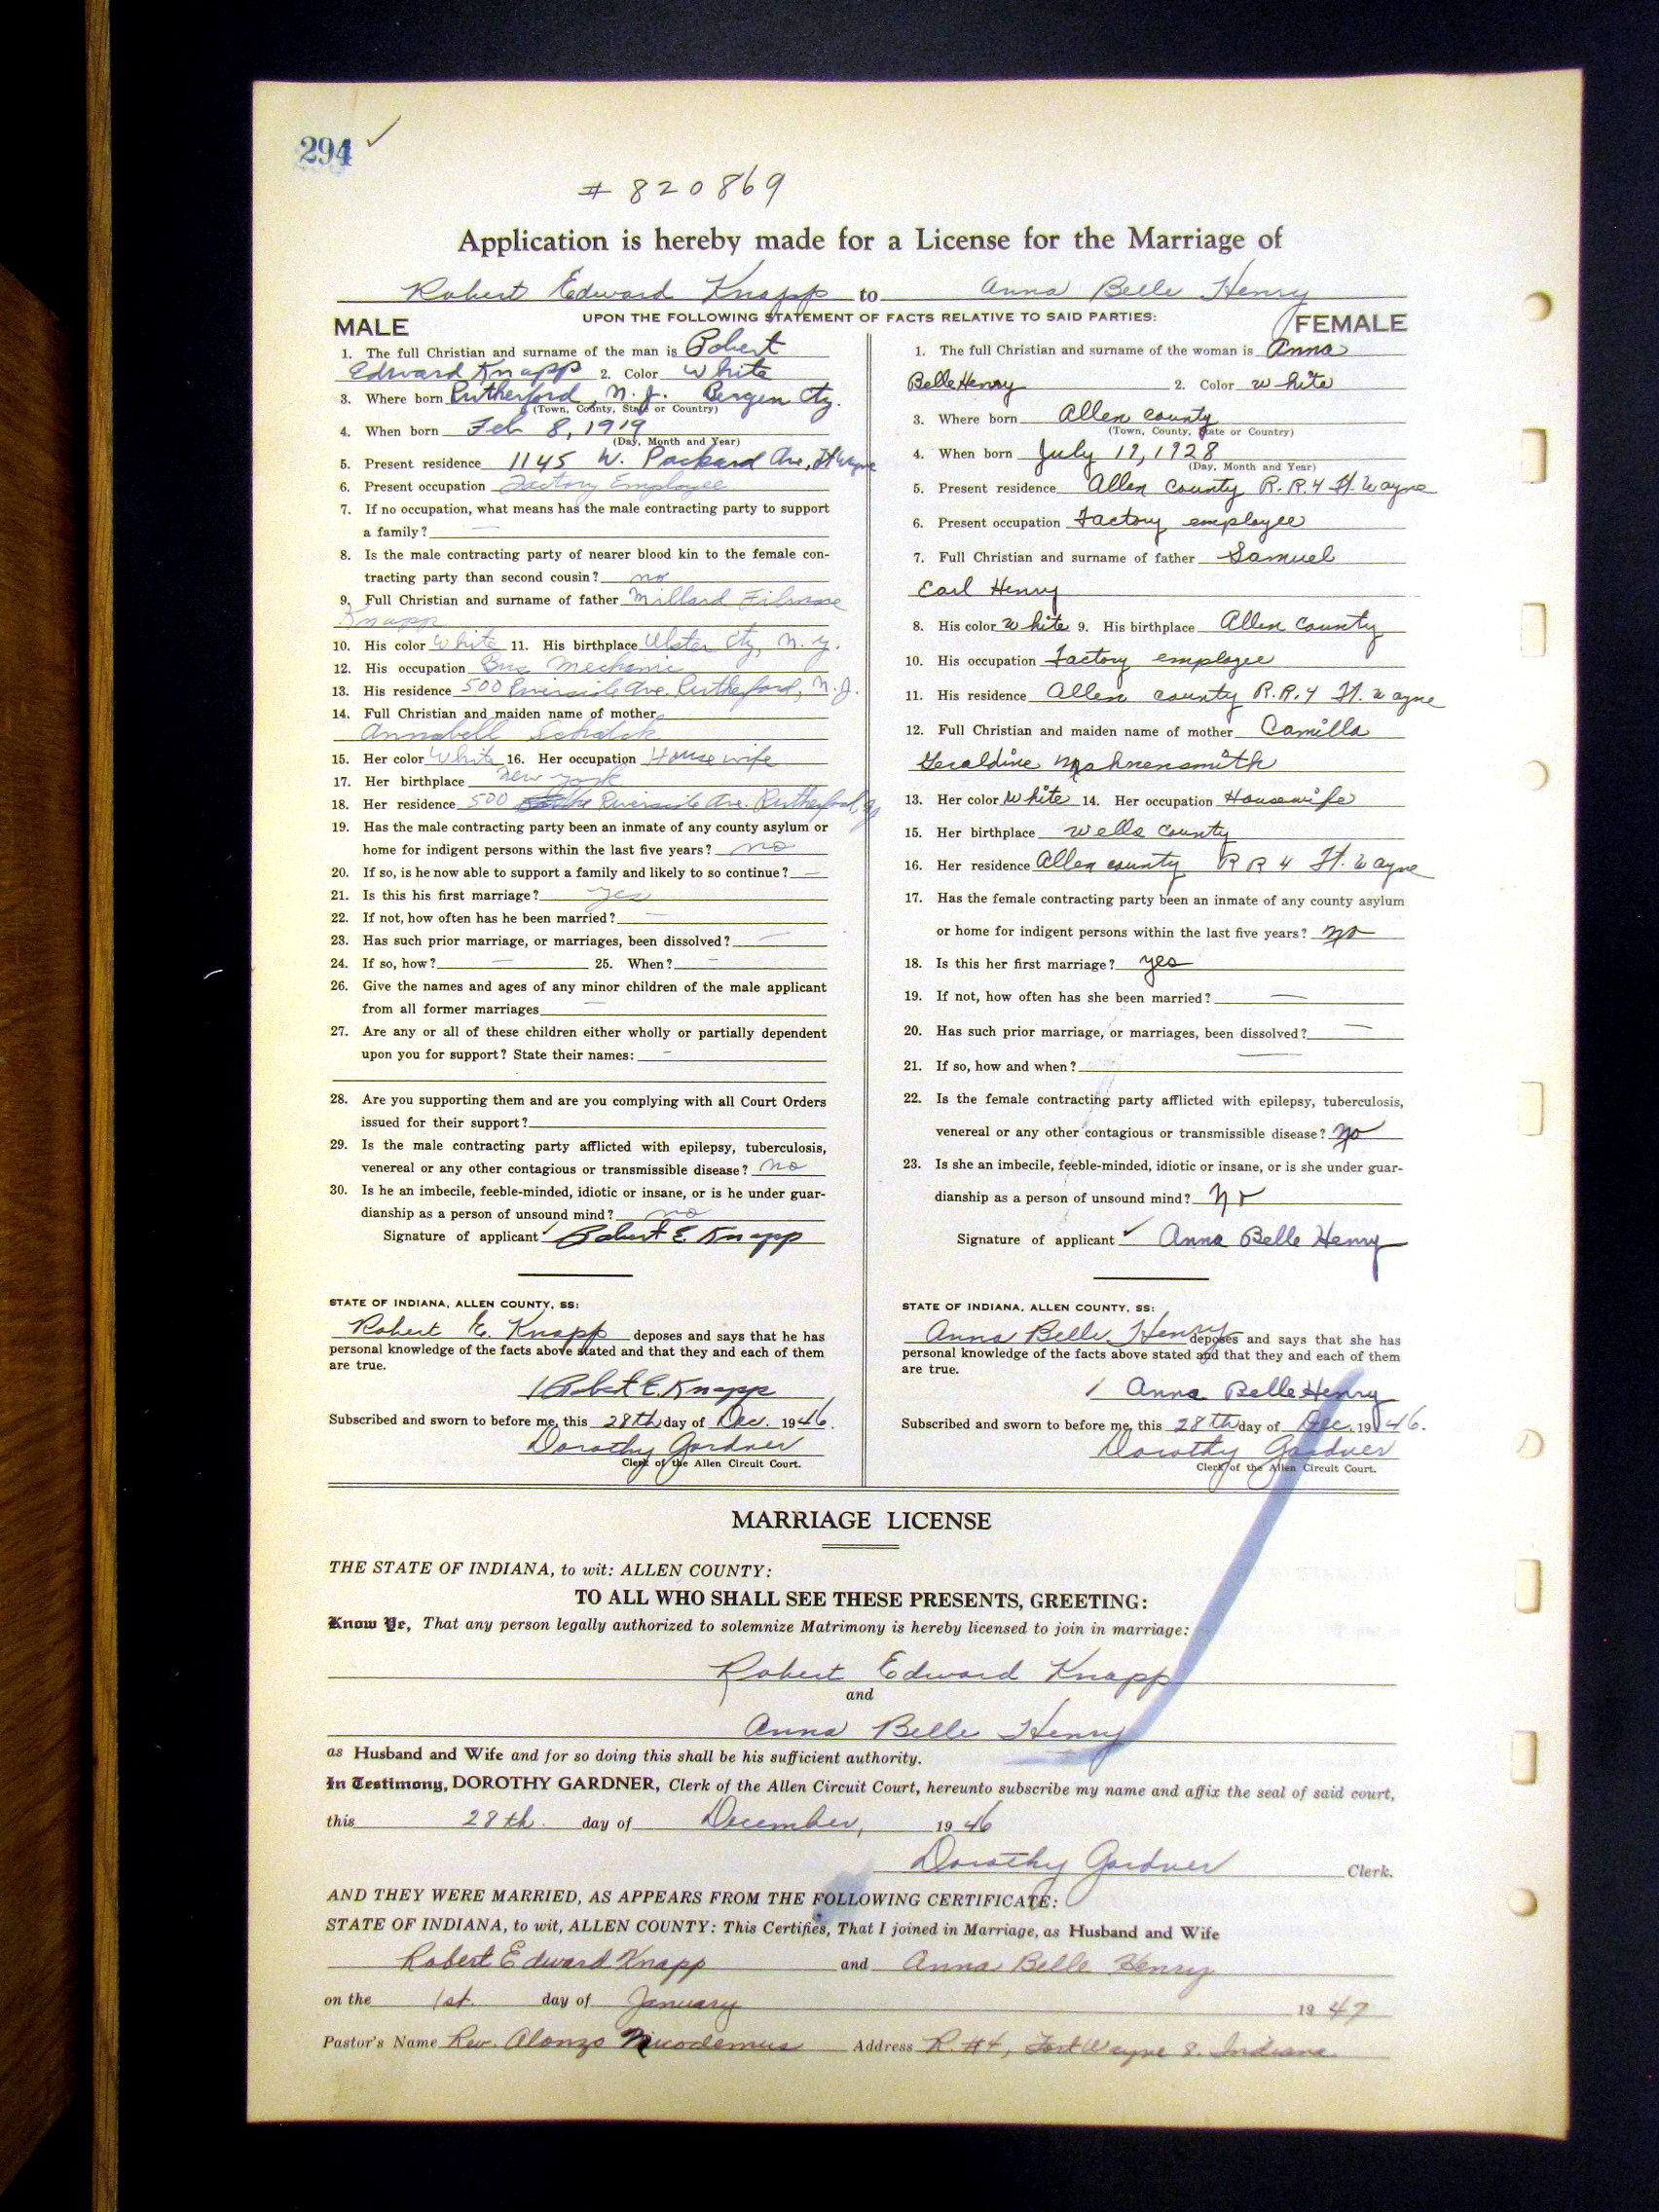 294 ✓
# 820869
Application is hereby made for a License for the Marriage of
Robert Edward Knapp to Anna Belle Henry
UPON THE FOLLOWING STATEMENT OF FACTS RELATIVE TO SAID PARTIES:
MALE
1. The full Christian and surname of the man is Robert
Edward Knapp 2. Color White
3. Where born Rutherford, N. J. Bergen Cty.
(Town, County, State or Country)
4. When born Feb 8, 1919
(Day, Month and Year)
5. Present residence 1145 W. Packard Ave, Ft Wayne
6. Present occupation Factory Employee
7. If no occupation, what means has the male contracting party to support
a family? —
8. Is the male contracting party of nearer blood kin to the female con-
tracting party than second cousin? no
9. Full Christian and surname of father Millard Filmore
Knapp
10. His color White 11. His birthplace Ulster Cty, N. Y.
12. His occupation Bus Mechanic
13. His residence 500 Riverside Ave. Rutherford, N. J.
14. Full Christian and maiden name of mother
Annabell
15. Her color White 16. Her occupation Housewife
17. Her birthplace New York
18. Her residence 500 Riverside Ave. Rutherford,
19. Has the male contracting party been an inmate of any county asylum or
home for indigent persons within the last five years? no
20. If so, is he now able to support a family and likely to so continue? —
21. Is this his first marriage? yes
22. If not, how often has he been married? —
23. Has such prior marriage, or marriages, been dissolved? —
24. If so, how? — 25. When? —
26. Give the names and ages of any minor children of the male applicant
from all former marriages —
27. Are any or all of these children either wholly or partially dependent
upon you for support? State their names: —
28. Are you supporting them and are you complying with all Court Orders
issued for their support?
29. Is the male contracting party afflicted with epilepsy, tuberculosis,
venereal or any other contagious or transmissible disease? no
30. Is he an imbecile, feeble-minded, idiotic or insane, or is he under guar-
dianship as a person of unsound mind? no
Signature of applicant ✓ Robert E Knapp
STATE OF INDIANA, ALLEN COUNTY, SS:
Robert E. Knapp deposes and says that he has
personal knowledge of the facts above stated and that they and each of them
are true.
/ Robert E. Knapp
Subscribed and sworn to before me, this 28th day of Dec. 1946.
Dorothy Gardner
Clerk of the Allen Circuit Court.
FEMALE
1. The full Christian and surname of the woman is Anna
Belle Henry 2. Color white
3. Where born Allen county
(Town, County, State or Country)
4. When born July 19, 1928
(Day, Month and Year)
5. Present residence Allen county R.R.4 Ft. Wayne
6. Present occupation Factory employee
7. Full Christian and surname of father Samuel
Earl Henry
8. His color White 9. His birthplace Allen county
10. His occupation Factory employee
11. His residence Allen county R.R.4 Ft. Wayne
12. Full Christian and maiden name of mother Camilla
Geraldine
13. Her color White 14. Her occupation Housewife
15. Her birthplace wells county
16. Her residence Allen county R R 4 Ft. Wayne
17. Has the female contracting party been an inmate of any county asylum
or home for indigent persons within the last five years? no
18. Is this her first marriage? yes
19. If not, how often has she been married? —
20. Has such prior marriage, or marriages, been dissolved? —
21. If so, how and when? —
22. Is the female contracting party afflicted with epilepsy, tuberculosis,
venereal or any other contagious or transmissible disease? no
23. Is she an imbecile, feeble-minded, idiotic or insane, or is she under guar-
dianship as a person of unsound mind? No
Signature of applicant ✓ Anna Belle Henry
STATE OF INDIANA, ALLEN COUNTY, SS:
Anna Belle Henry deposes and says that she has
personal knowledge of the facts above stated and that they and each of them
are true.
/ Anna Belle Henry
Subscribed and sworn to before me, this 28th day of Dec. 1946.
Dorothy Gardner
Clerk of the Allen Circuit Court.
MARRIAGE LICENSE
THE STATE OF INDIANA, to wit: ALLEN COUNTY:
TO ALL WHO SHALL SEE THESE PRESENTS, GREETING:
Know Ye, That any person legally authorized to solemnize Matrimony is hereby licensed to join in marriage:
Robert Edward Knapp
and
Anna Belle Henry
as Husband and Wife and for so doing this shall be his sufficient authority.
In Testimony, DOROTHY GARDNER, Clerk of the Allen Circuit Court, hereunto subscribe my name and affix the seal of said court,
this 28th. day of December, 1946
Dorothy Gardner Clerk.
AND THEY WERE MARRIED, AS APPEARS FROM THE FOLLOWING CERTIFICATE:
STATE OF INDIANA, to wit, ALLEN COUNTY: This Certifies, That I joined in Marriage, as Husband and Wife
Robert Edward Knapp and Anna Belle Henry
on the 1st. day of January 1947
Pastor's Name Rev. Alonzo Nicodemus Address R. #4, Fort Wayne 8. Indiana